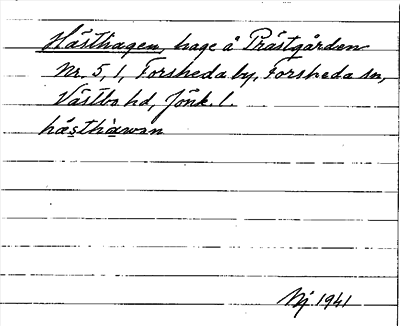 Hästhagen, hage å Prästgården
Nr. 5, 1, Forsheda by, Forsheda sn,
Västbo hd, Jönk. l.
hästhàwan
Nj 1941